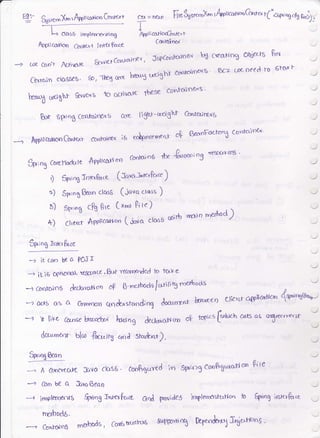 Eg:- SystemXmlApplicationContext ctx = new FileSystemXmlApplicationContext("springcfg.xml");
class implementing ApplicationContext
Application Context Interface Container
→ we can't Activate ServletContainer, JspContainer by creating objects for
Certain classes. So, They are heavy weight containers. Bcz we need to start
heavy weight Servers to activate these containers.
But spring containers are light-weight Containers.
→ ApplicationContext container is enhancement of BeanFactory Container.
Spring CoreModule Application contains the following resources.
1) Spring Interface (Java Interface)
2) Spring Bean class (Java class)
3) Spring Cfg file (xml file)
4) client Application (Java class with main method)
Spring Interface
→ it can be a POJI
→ it is optional resource. But recommended to take
→ contains declaration of B-methods/utility methods
→ acts as a Common understanding document between client application &
→ it is like course broacher having declaration of topics (which acts as agreement
document b/w faculty and student).
Spring Bean
→ A concrete Java class. Configured in Spring Configuration file.
→ can be a JavaBean
→ implements Spring Interface and provides implementation to Spring interface
methods.
→ Contains methods, Constructors supporting Dependency Injections.